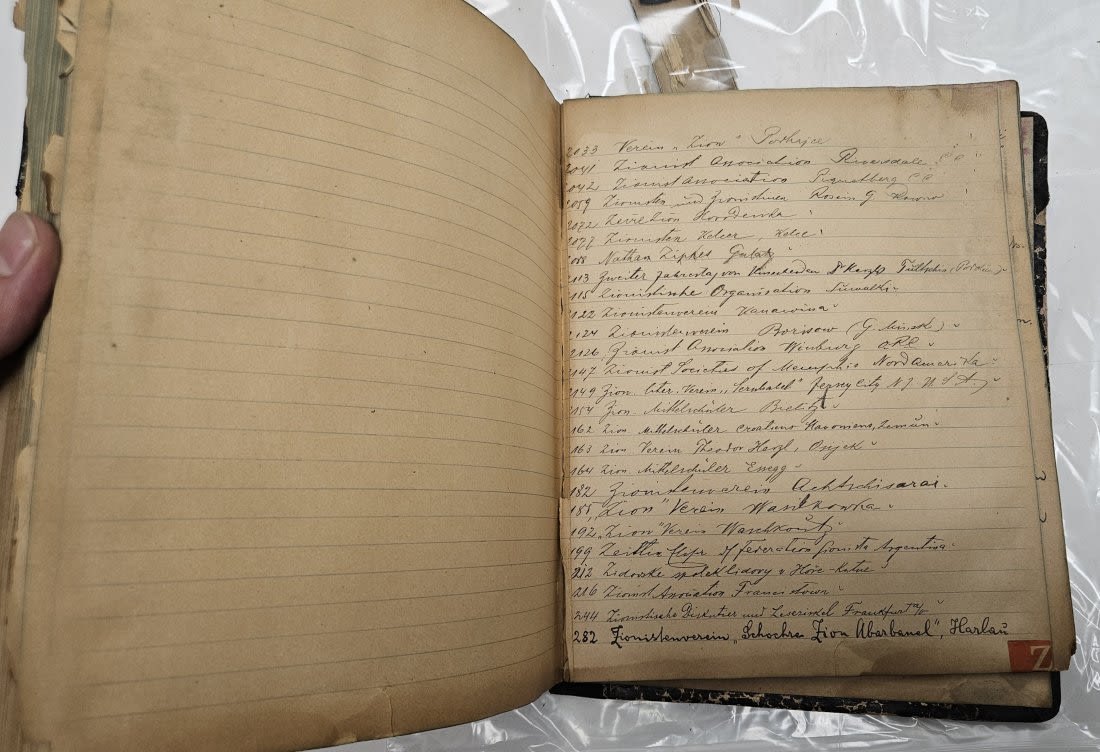 2033 Verein „Zion" Podhajce
2041 Zionist Association Riversdale C C "
2042 Zionist Association Piquetberg C C
2059 Zionisten und Zionistinen Rosein G. Kowno
2072 Zeire Zion Horodenka "
2077 Zionisten Kelcer, Kelce "
Nathan Zipkes Galatz "
2113 Zweiter Jahrestag von Hinscheiden Dr Herzls
2115 Zionistische Organisation Suwalki "
2122 Zionistenverein Kanawina "
2124 Zionistenverein Borisow (G. Minsk) "
2126 Zionist Association Winburg ORC "
2147 Zionist Societies of Memphis Nord Amerika "
2149 Zion. liter. Verein „ " Jersey City N J U S A "
2154 Zion. Mittelschüler Bielitz "
162 Zion Mittelschüler Semlin "
163 Zion Verein Theodor Herzl, Osijek "
164 Zion. Mittelschüler Essegg "
182 Zionistenverein Achtschisarai "
185 „Zion" Verein Waschkowka "
192 „Zion" Verein Waschkoutz "
199 of Federation Sionista Argentina
212 Zidowske spolek lidovy v Hoře-Kutne "
216 Zionist Association Francistown "
244 Zionistische Diskutier und Lesezirkel Frankfurt a/O "
282 Zionistenverein „Schochrei Zion Abarbanel", Harlau
Z